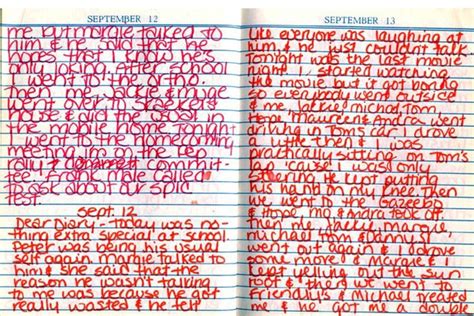 SEPTEMBER 12
me but margie talked to
him & he said that he
hopes that I know he's
only jok'n. After school
I went to the ortho.
then me, Jackie, & muge
went over to Skeeter's
house & did the usual in
the mobile home. Tonight
I went to the homecoming
meeting I'm on the pep
rally & commit-
tee. Frank male called
to ask about our spic
test.
Sept. 12
Dear Diary - today was no-
thing extra special at school.
Peter was being his usual
self again. margie talked to
him & she said that the
reason he wasn't talking
to me was because he got
really wasted & he felt
SEPTEMBER 13
like everyone was laughing at
him & he just couldn't talk.
Tonight was the last movie
night. I started watching
the movie but it got boring
so everyone went outside
& me, Jackie, michael, Tom,
Hope, maureen & Andra went
driving in Tom's car. I drove
a little then & I was
practically sitting on Tom's
lap 'cause I was only
steering. He kept putting
his hand on my knee. Then
we went to the Gazeebo
& Hope, mg & Andra took off.
Then me, Jackie, margie,
michael, Tom & Jimmy S.
went out again & I drove
some more & margie &
kept yelling out the sun
roof & then we went to
Friendly's & Michael treated
me & he got me a double